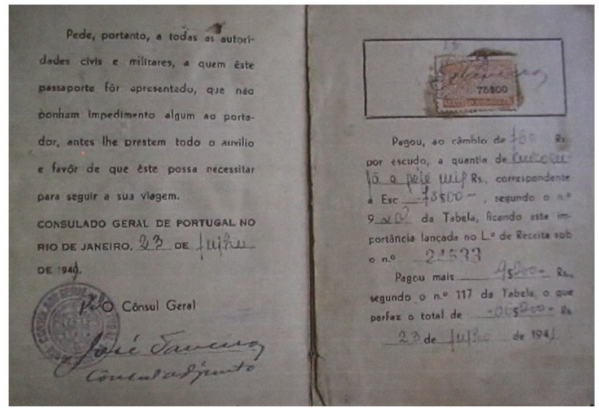 Pede, portanto, a todas as autori-
dades civis e militares, a quem êste
passaporte fôr apresentado, que não
ponham impedimento algum ao porta-
dor, antes lhe prestem todo o auxilio
e favôr de que êste possa necessitar
para seguir a sua viagem.
CONSULADO GERAL DE PORTUGAL NO
RIO DE JANEIRO, 23 DE Julho
DE 194
O Cônsul Geral
José Tavares
Consul adjunto
75$00
Pagou, ao câmbio de Rs.
por escudo, a quantia de
Rs. correspondente
a Esc 75$00 segundo o n.º
9 da Tabela, ficando esta im-
portância lançada no L.º de Receita sob
o n.º 24533
Pagou mais Rs.
segundo o n.º 117 da Tabela, o que
perfaz o total de Rs
23 de Julho de 194